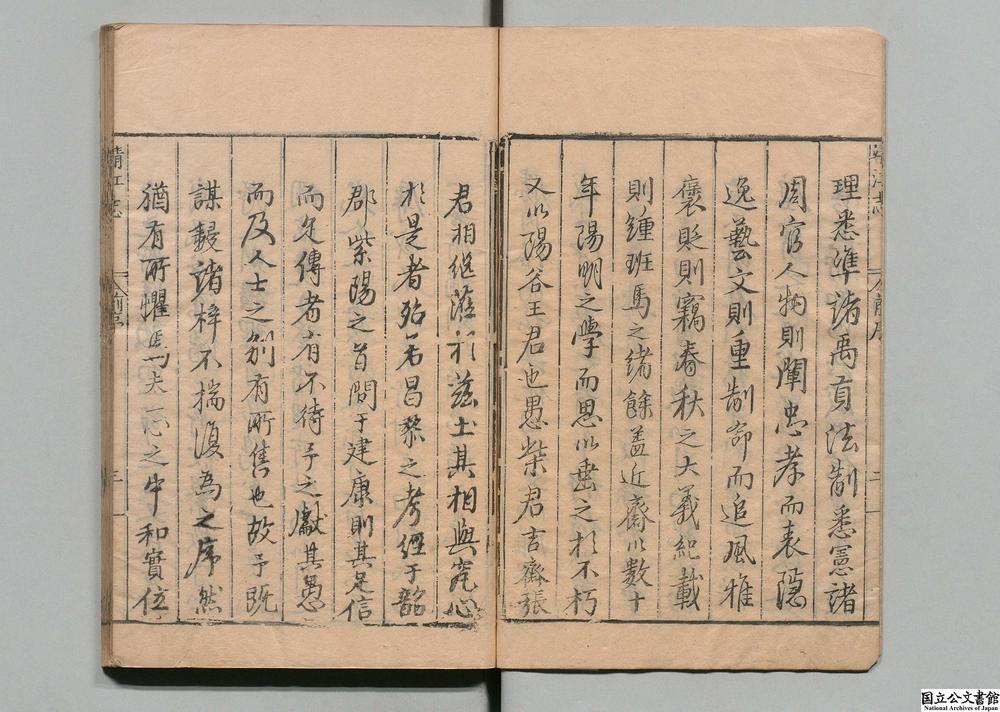 理悉準諸禹貢法制悉憲諸
周官人物則闡忠孝而表隱
逸藝文則重制命而追風雅
褒貶則竊春秋之大義紀載
則鍾班馬之緒餘蓋近齋以數十
年陽明之學而思以垂之於不朽
又以陽谷王君也愚柴君吉齋張
君相繼蒞於茲土其相與究心
於是者殆若昌黎之考經于韶
郡紫陽之首問于建康則其足信
而足傳者有不待予之獻其愚
而及人士之别有所售也故予既
謀鋟諸梓不揣復為之序然
猶有所懼焉夫一心之中和實位
靖江志
前序
三
前序
二
国立公文書館
National Archives of Japan